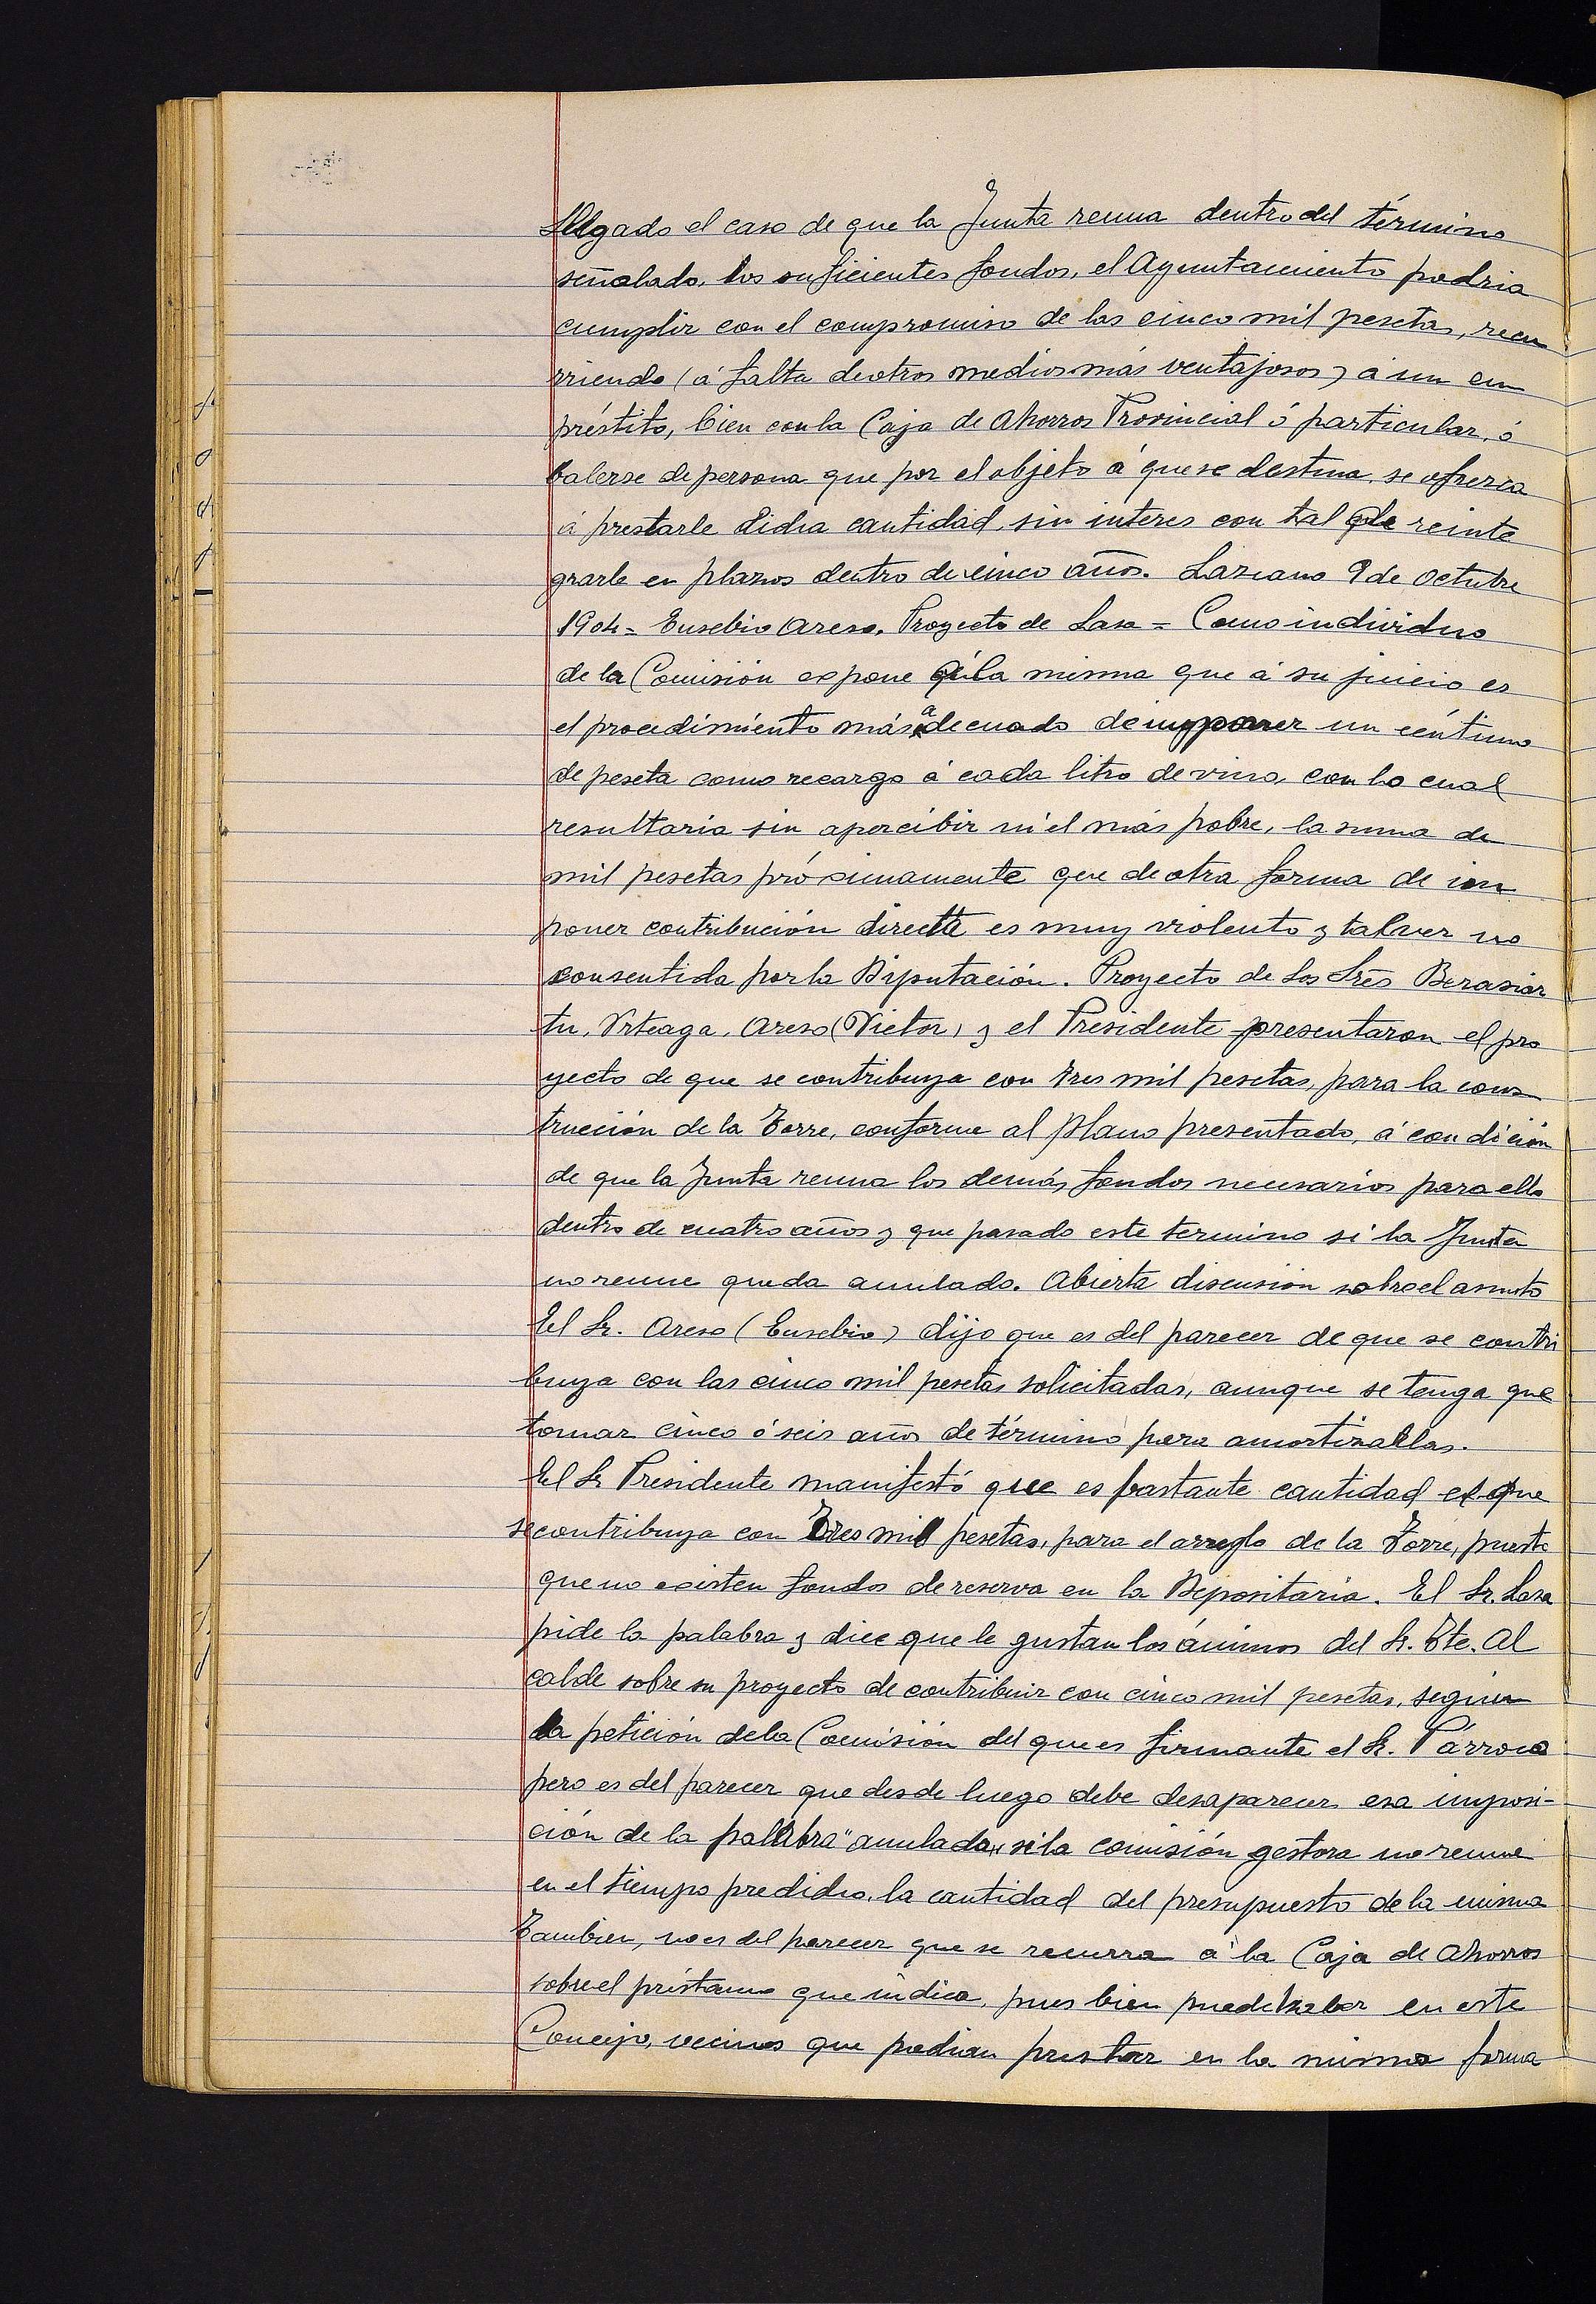 Llegado el caso de que la Junta reuna dentro del término
señalado, los suficientes fondos, el Ayuntamiento podria
cumplir con el compromiso de las cinco mil pesetas, recu
rriendo (á falta de otros medios más ventajosos) á un em
préstito, bien con la Caja de Ahorros Provincial ó particular, ó
balerse de persona que por el objeto á que se destina, se ofrezca
á prestarle dicha cantidad, sin interes con tal de reinte
grarle en plazos dentro de cinco años. Lazcano 9 de Octubre
1904= Eusebio Areso. Proyecto de Lasa = Como individuo
de la Comisión expone á la misma que á su juicio es
el procedimiento más adecuado de imponer un céntimo
de peseta como recargo á cada litro de vino, con lo cual
resultaria sin apercibir ni el más pobre, la suma de
mil pesetas próximamente que de otra forma de im
poner contribución directa es muy violento y talvez no
consentida por la Diputación. Proyecto de los Sres Berasiar
tu, Urteaga, Areso (Victor) y el Presidente presentaron el pro
yecto de que se contribuya con tres mil pesetas, para la cons
trucción de la Torre, conforme al plano presentado, á condición
de que la Junta reuna los demás fondos necesarios para ello
dentro de cuatro años y que pasado este termino si la Junta
no reune queda anulado. Abierta discusión sobre el asunto
El Sr. Areso (Eusebio) dijo que es del parecer de que se contri
buya con las cinco mil pesetas solicitadas, aunque se tenga que
tomar cinco ó seis años de término para amortizarlas.
El Sr Presidente manifestó que es bastante cantidad el que
se contribuya con Tres mil pesetas, para el arreglo de la Torre, puesto
que no existen fondos de reserva en la Depositaria. El Sr. Lasa
pide la palabra y dice que le gustan los ánimos del Sr. Tte. Al
calde sobre su proyecto de contribuir con cinco mil pesetas, seguun
la petición de la Comisión del que es firmante el Sr. Párroco
pero es del parecer que desde luego debe desaparecer esa imposi-
ción de la palabra "anulada" si la comisión gestora no reune
en el tiempo predicho, la cantidad del presupuesto de la misma
Tambien, no es del parecer que se recurra á la Caja de Ahorros
sobre el préstamo que indica, pues bien puede haber en este
Concejo, vecinos que podian prestar en la misma forma